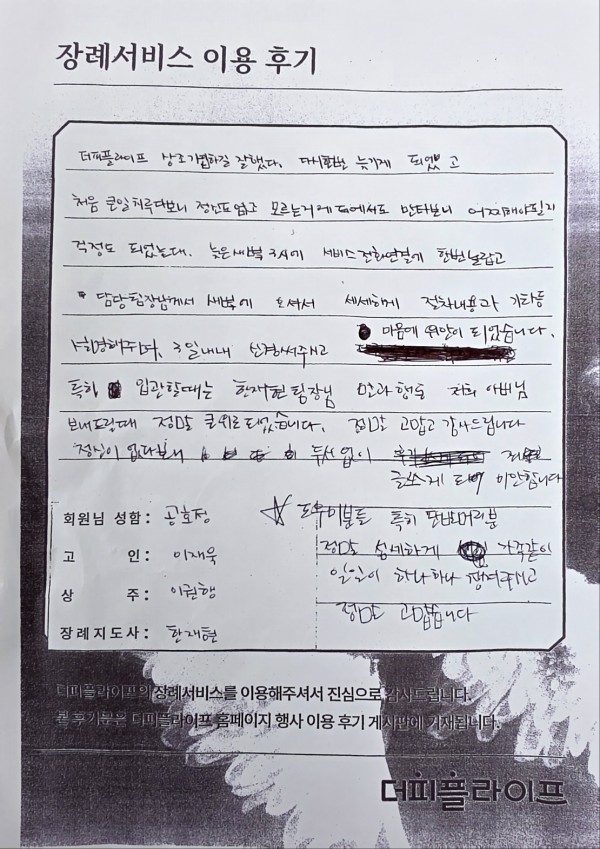 장례서비스 이용 후기
더피플라이프 상조가입하길 잘했다. 다시한번 늦기게 되었고
처음 큰일치루다보니 정신도없고 모르는거에 대해서도 많타보니 어찌해야할지
걱정도 되었는데. 늦은새벽 3시에 서비스전화연결에 한번놀랍고
담당팀장님께서 새벽에 오셔서 세세하게 절차내용과 기타등
설명해주시며, 3일내내 신경써주시고 마음에 위안이 되었습니다.
특히 입관할때는 한재현팀장님 말과행동 저희 아버님
보내드릴때 정말 큰위로되었습니다. 정말 고맙고 감사드립니다
정신이 없다보니 두서없이
글쓰게 되어 미안합니다
회원님 성함 : 공효정
고 인 : 이재욱
상 주 : 이권행
장례지도사 : 한재현
☆ 도우미분들 특히 단발머리분
정말 섬세하게 가족같이
일일이 하나하나 챙겨주시고
정말 고맙습니다
더피플라이프의 장례서비스를 이용해주셔서 진심으로 감사드립니다.
본 후기문은 더피플라이프 홈페이지 행사 이용 후기 게시판에 기재됩니다.
더피플라이프